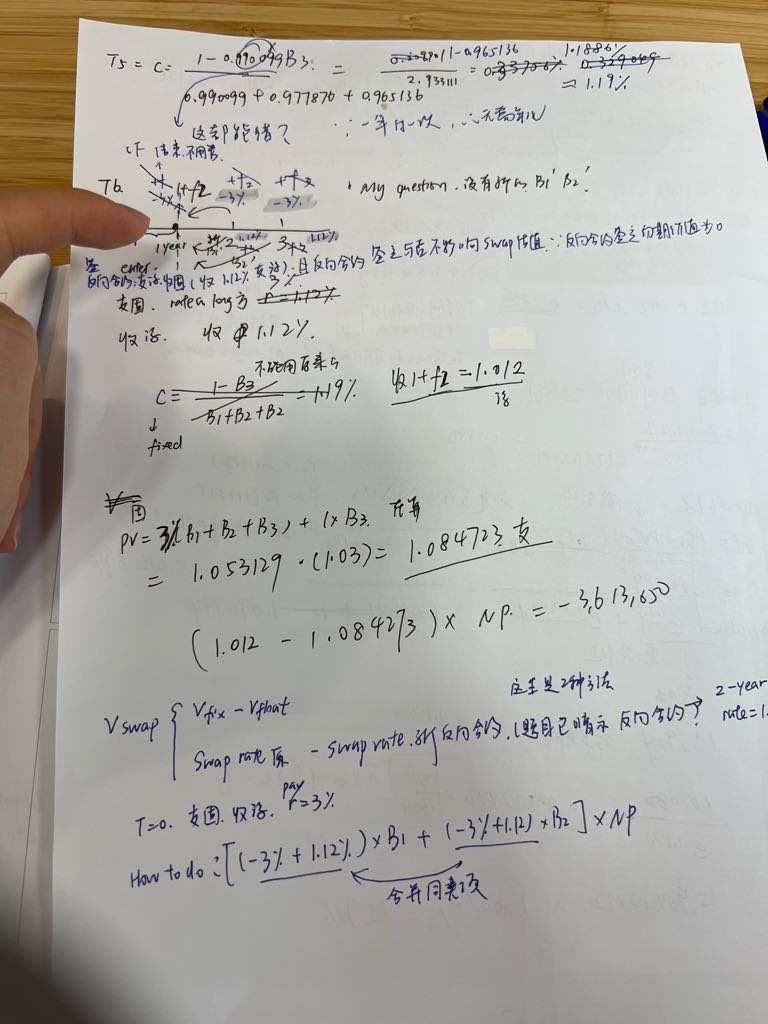 T5 = C = (1 - 0.990099 B3) / (0.990099 + 0.977876 + 0.965136) = (1-0.965136) / 2.933111 = 1.1886% = 1.19%
这都能错?
∵一年内一次,∴
T6
1+f2 +f2 +f2
-3% -3% -3%
My question. 没有 B1' B2'.
1year 2 1.12% 3 1.12%
B1' B2'
enter.
反向合约支浮收固(收 1.12% 支浮).且反向合约 签之与否不影响 swap 估值∵反向合约签订初期价值为0
支固. rate 3%
r = 1.12%
收浮. 收 1.12%.
不能用
C = (1 - B3) / (B1 + B2 + B2) = 1.19%
收 1+f2 = 1.012
浮
fixed
V固
PV = 3%(B1 + B2 + B3) + 1×B3.
= 1.053129 · (1.03) = 1.084723 支
(1.012 - 1.084273) × NP. = -3,613,650
这里是2种方法
2-year
rate=1.
V swap { Vfix - Vfloat
Swap rate 原 - swap rate.新 反向合约.(题目已暗示 反向合约?
T=0. 支固.收浮. pay r=3%
How to do: [(-3% + 1.12%) × B1 + (-3% + 1.12) × B2] × NP
合并同类项